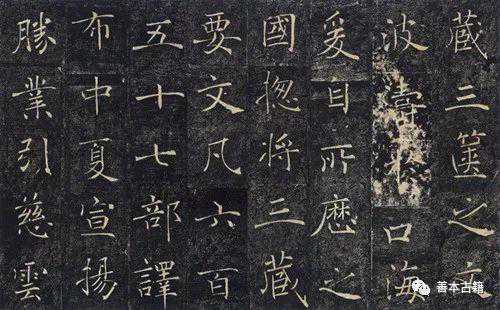 藏三篋之文
波濤於口海
爰自所歷之
國揔將三藏
要文凡六百
五十七部譯
布中夏宣揚
勝業引慈雲
善本古籍